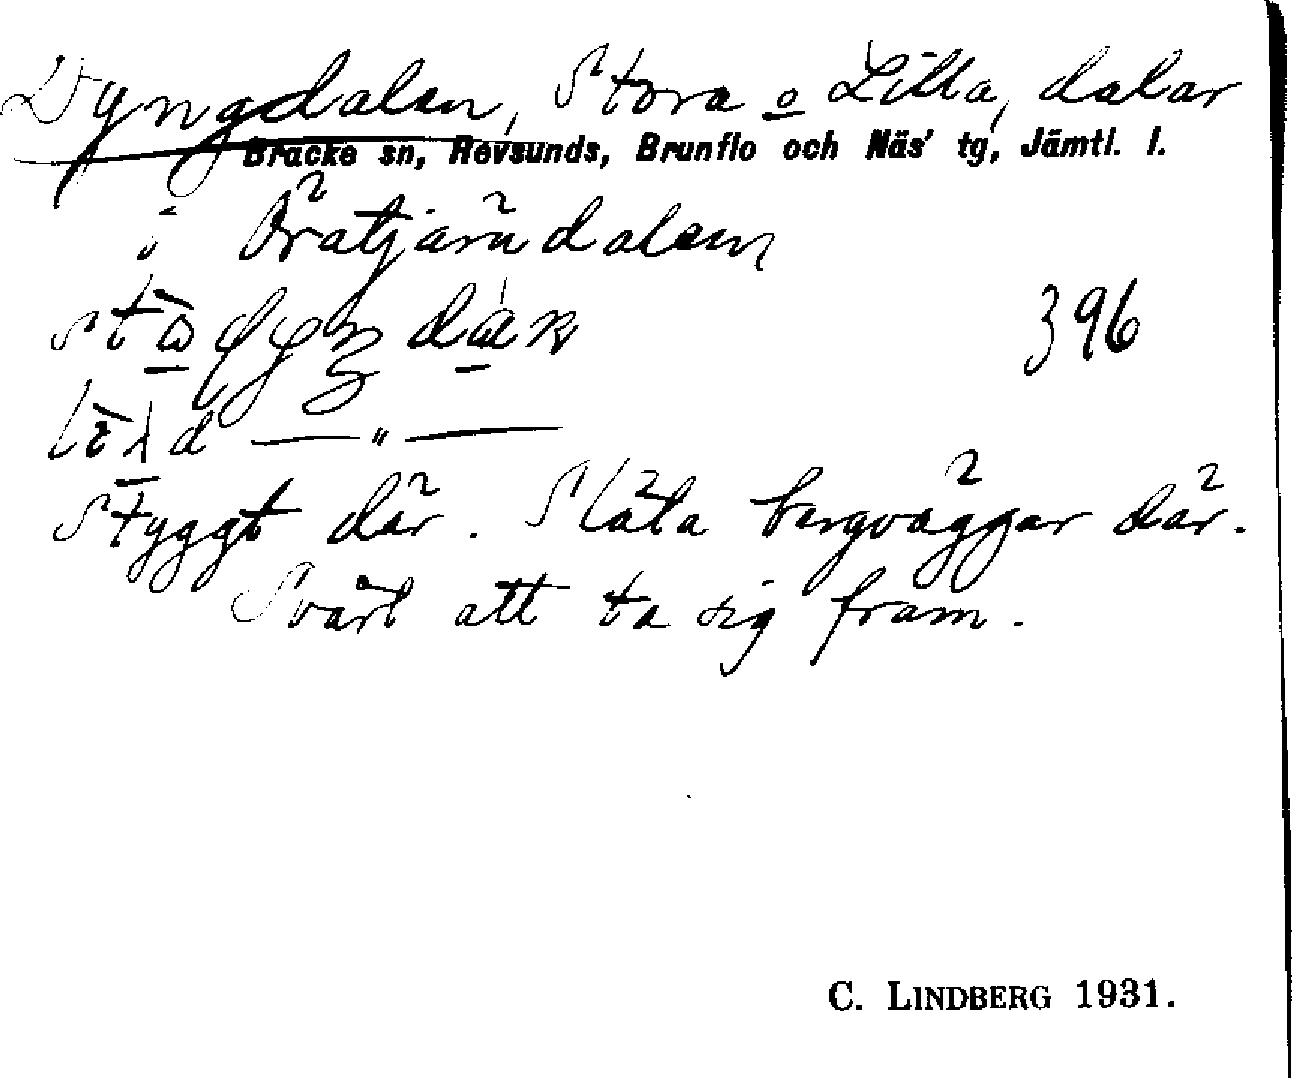 Dyngdalen, Stora o Lilla, dalar
Bräcke sn, Revsunds, Brunflo och Näs' tg, Jämtl. l.
i Öratjärndalen
396
Styggt där. Släta bergväggar där.
Svårt att ta sig fram.
C. LINDBERG 1931.